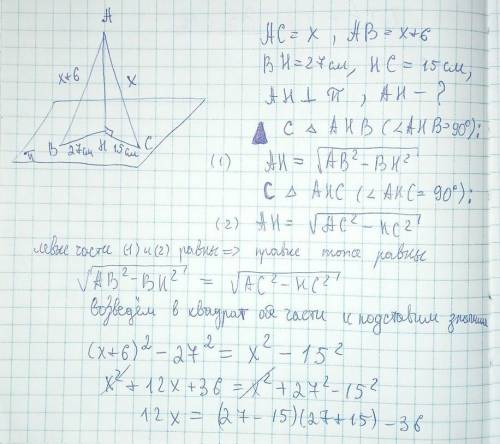 A
x+6
x
B
27см
H
15см
C
π
AC = x , AB = x+6
BH = 27 см, HC = 15 см,
AH ⊥ π , AH - ?
С △ AHB (∠AHB = 90°):
(1) AH = √(AB² - BH²)
С △ AHC (∠AHC = 90°):
(2) AH = √(AC² - HC²)
левые части (1) и (2) равны => правые тоже равны
√(AB² - BH²) = √(AC² - HC²)
Возведём в квадрат обе части и подставим
(x+6)² - 27² = x² - 15²
x² + 12x + 36 = x² + 27² - 15²
12x = (27 - 15)(27 + 15) - 36